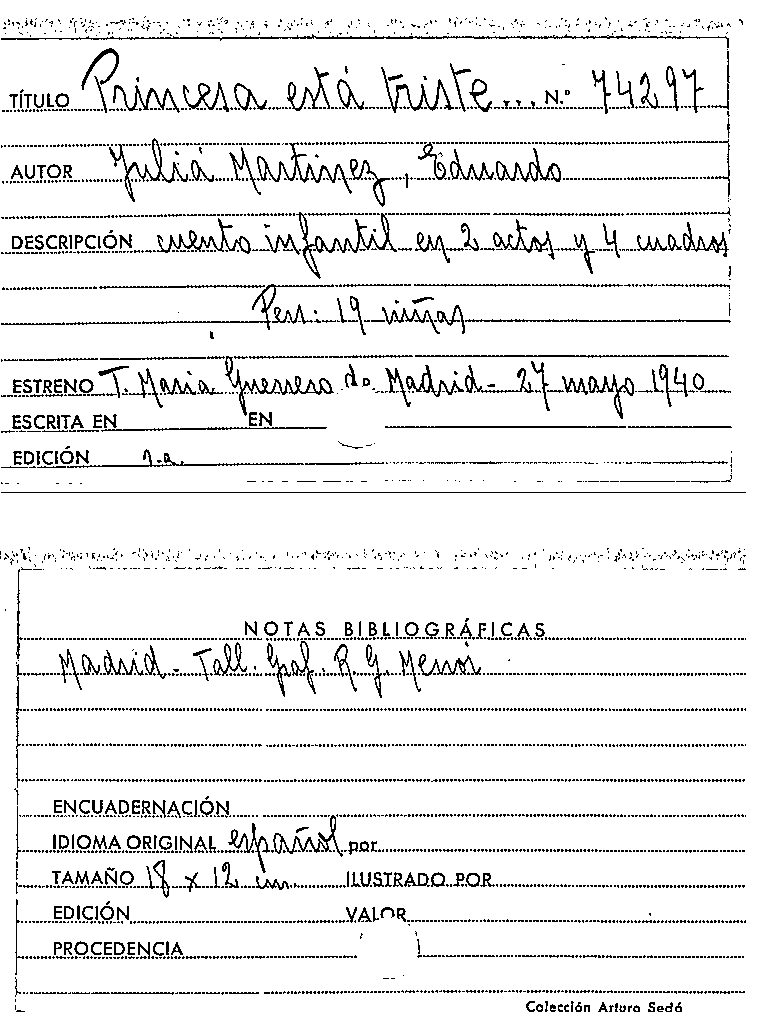 TÍTULO Princesa está triste... N.º 74297
AUTOR Juliá Martínez, Eduardo
DESCRIPCIÓN cuento infantil en 2 actos y 4 cuadros
Pers: 19 niñas
ESTRENO T. Maria Guerrero de Madrid - 27 mayo 1940
ESCRITA EN EN
EDICIÓN s.a.
NOTAS BIBLIOGRÁFICAS
Madrid - Tall. Graf. R. G. Menor
ENCUADERNACIÓN
IDIOMA ORIGINAL español por
TAMAÑO 18 x 12 cm. ILUSTRADO POR
EDICIÓN VALOR
PROCEDENCIA
Colección Arturo Sedó